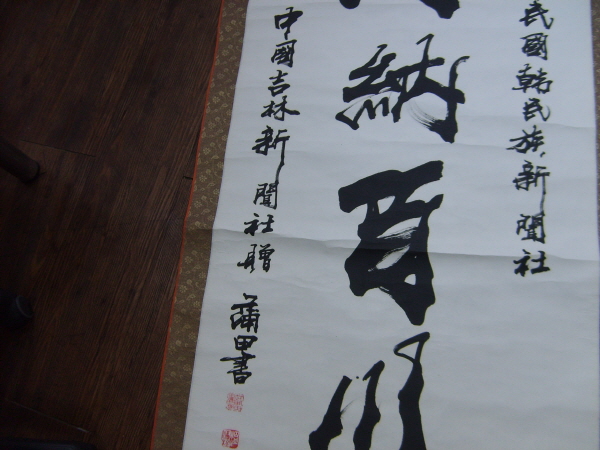 民國韓民族新聞社
納百川
中國吉林新聞社贈
蒲田書